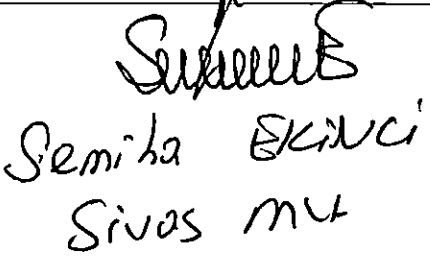 Semiha EKiNCi
Sivas MV